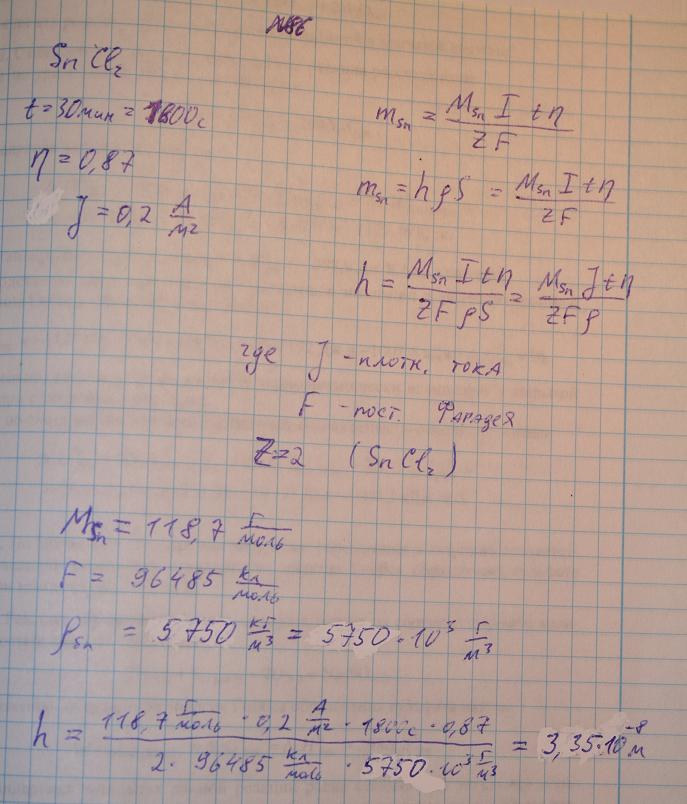 Sn Cl₂
t = 30 мин = 1800 с
η = 0,87
J = 0,2 А/м²
m_Sn = (M_Sn I t η)/(Z F)
m_Sn = h ρ S = (M_Sn I t η)/(Z F)
h = (M_Sn I t η)/(Z F ρ S) = (M_Sn J t η)/(Z F ρ)
где J - плотн. тока
F - пост. Фарадея
Z = 2 (Sn Cl₂)
M_Sn = 118,7 г/моль
F = 96485 кл/моль
ρ_Sn = 5750 кг/м³ = 5750 · 10³ г/м³
h = (118,7 г/моль · 0,2 А/м² · 1800 с · 0,87)/(2 · 96485 кл/моль · 5750 · 10³ г/м³) = 3,35·10⁻⁸ м